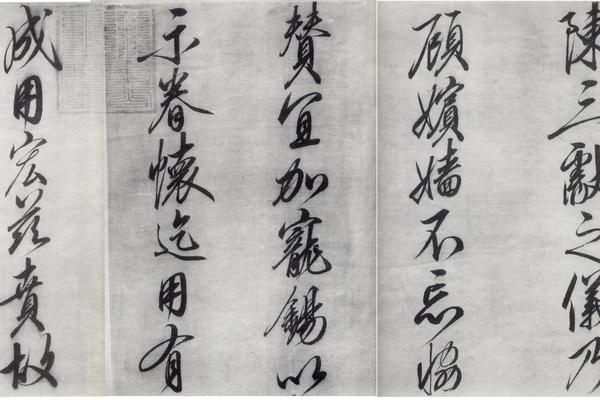 陳三獻之儀乃
顧嬪嬙不忘恊
贊宜加寵錫以
示眷懷迄用有
成用宏茲賁故